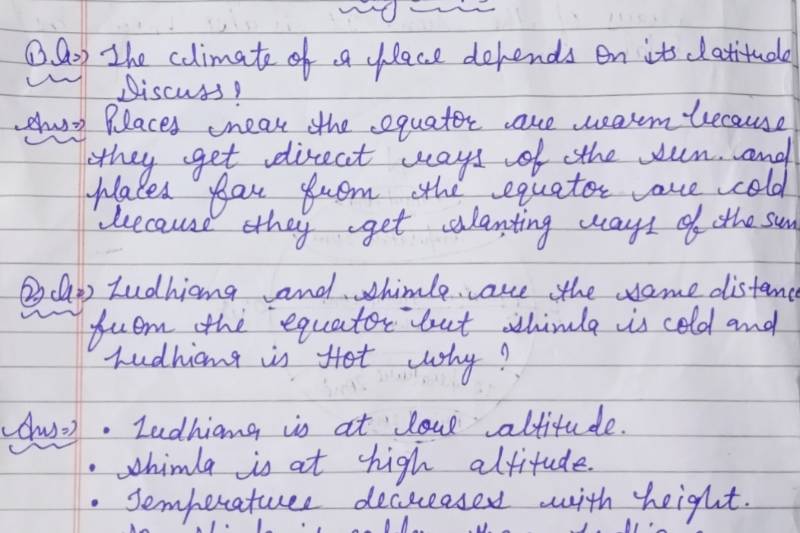 1) Q⇒) The climate of a place depends on its latitude
Discuss?
Ans⇒ Places near the equator are warm because
they get direct rays of the sun. and
places far from the equator are cold
because they get slanting rays of the sun
2) Q⇒) Ludhiana and shimla are the same distance
from the equator but shimla is cold and
Ludhiana is Hot why?
Ans⇒) • Ludhiana is at low altitude.
• shimla is at high altitude.
• Temperature decreases with height.